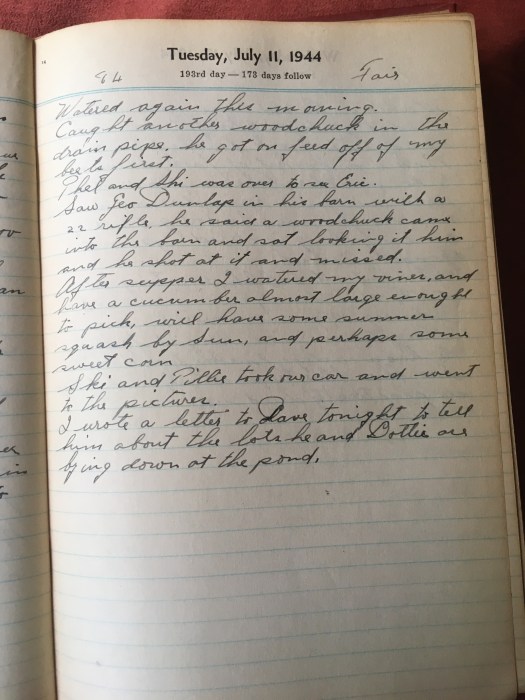 Tuesday, July 11, 1944
193rd day — 173 days follow
84 Fair
Watered again this morning.
Caught another woodchuck in the
drain pipe, he got on feed off of my
beets first.
Phet and Ski was over to see Eric.
Saw Geo Dunlap in his barn with a
22 rifle, he said a woodchuck came
into the barn and sat looking it him
and he shot at it and missed.
After supper I watered my vines, and
have a cucumber almost large enought
to pick, will have some summer
squash by Sun, and perhaps some
sweet corn
Ski and Tillie took our car and went
to the pictures.
I wrote a letter to Dave tonight to tell
him about the lots he and Dottie are
bying down at the pond.